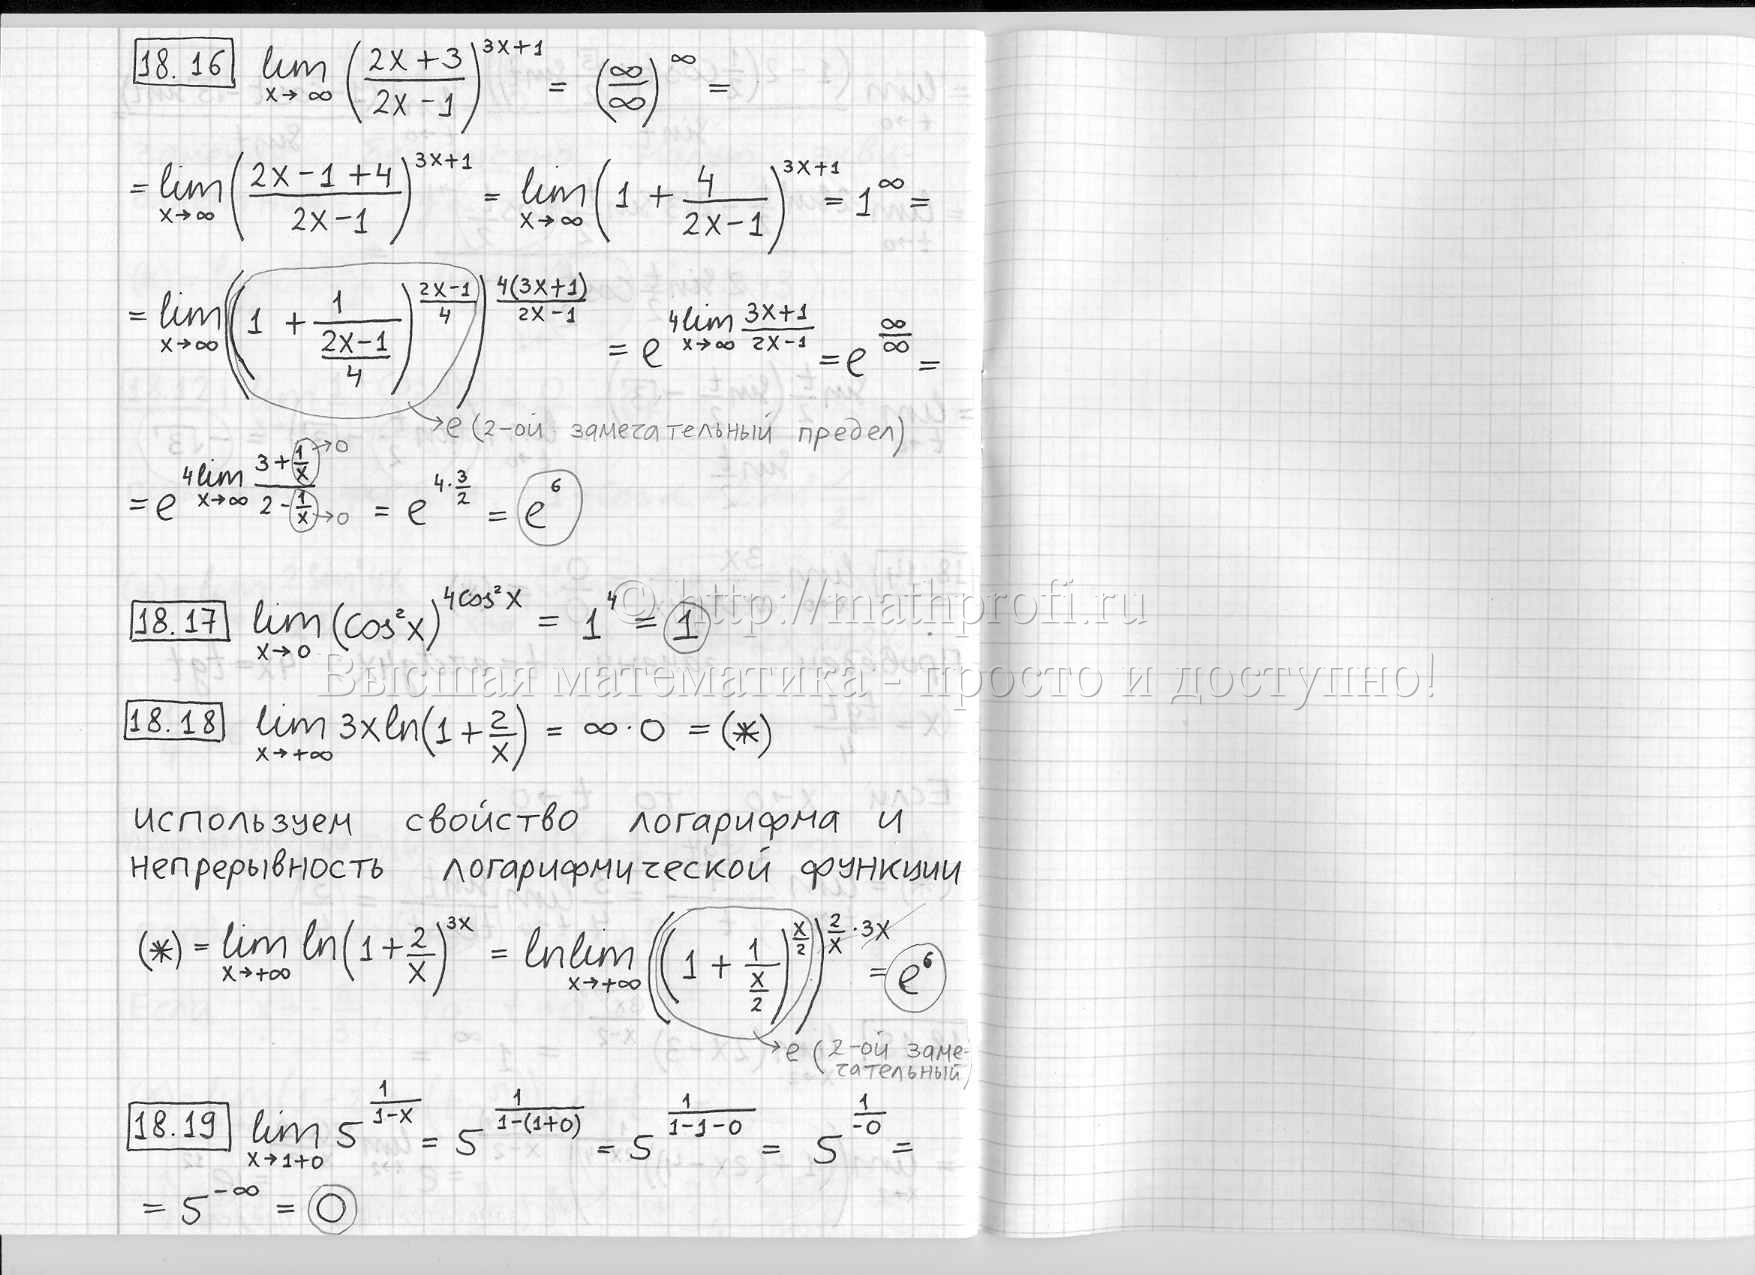 18.16 lim x→∞ ((2x+3)/(2x-1))^(3x+1) = (∞/∞)^∞ =
= lim x→∞ ((2x-1+4)/(2x-1))^(3x+1) = lim x→∞ (1 + 4/(2x-1))^(3x+1) = 1^∞ =
= lim x→∞ ((1 + 1/((2x-1)/4))^((2x-1)/4))^(4(3x+1)/(2x-1)) = e^(4 lim x→∞ (3x+1)/(2x-1)) = e^(∞/∞) =
→ e (2-ой замечательный предел)
= e^(4 lim x→∞ (3+1/x)/(2-1/x)) →0 →0 = e^(4·3/2) = e^6
© http://mathprofi.ru
18.17 lim x→0 (cos²x)^(4cos²x) = 1^4 = 1
Высшая математика - просто и доступно!
18.18 lim x→+∞ 3x ln(1+2/x) = ∞·0 = (*)
используем свойство логарифма и
непрерывность логарифмической функции
(*) = lim x→+∞ ln(1+2/x)^(3x) = ln lim x→+∞ ((1 + 1/(x/2))^(x/2))^(2/x · 3x) = e^6
→ e (2-ой заме-
чательный)
18.19 lim x→1+0 5^(1/(1-x)) = 5^(1/(1-(1+0))) = 5^(1/(1-1-0)) = 5^(1/-0) =
= 5^(-∞) = 0